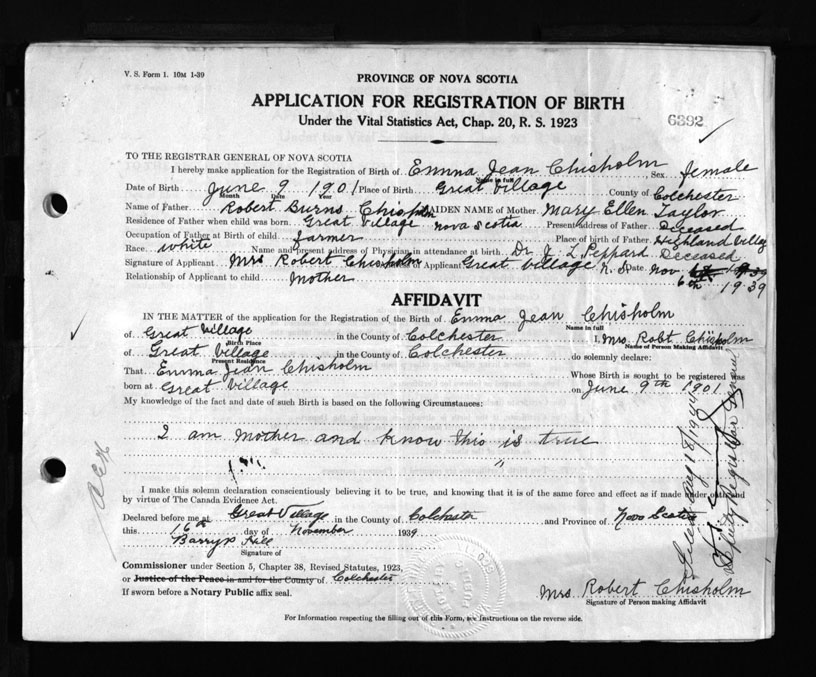 V. S. Form 1. 10M 1-39
PROVINCE OF NOVA SCOTIA
APPLICATION FOR REGISTRATION OF BIRTH
Under the Vital Statistics Act, Chap. 20, R. S. 1923
6392
TO THE REGISTRAR GENERAL OF NOVA SCOTIA
I hereby make application for the Registration of Birth of Emma Jean Chisholm Sex female
Name in full
Date of Birth June 9 1901 Place of Birth Great Village County of Colchester
Month Date Year
Name of Father Robert Burns Chisholm MAIDEN NAME of Mother Mary Ellen Taylor
Residence of Father when child was born Great Village Nova Scotia Present address of Father Deceased
Occupation of Father at Birth of child farmer Place of birth of Father Highland Village
Race white Name and present address of Physician in attendance at birth Dr. J. L. Peppard Deceased
Signature of Applicant Mrs Robert Chisholm of Applicant Great Village N. S. Date Nov. 1939
Relationship of Applicant to child mother 6th 1939
AFFIDAVIT
IN THE MATTER of the application for the Registration of the Birth of Emma Jean Chisholm
Name in full
of Great Village in the County of Colchester I, Mrs. Robt Chisholm
Birth Place Name of Person Making Affidavit
of Great Village in the County of Colchester do solemnly declare:
Present Residence
That Emma Jean Chisholm Whose Birth is sought to be registered was
born at Great Village on June 9th 1901
My knowledge of the fact and date of such Birth is based on the following Circumstances:
I am mother and know this is true
"
I make this solemn declaration conscientiously believing it to be true, and knowing that it is of the same force and effect as if made under oath and
by virtue of The Canada Evidence Act.
Declared before me at Great Village in the County of Colchester and Province of Nova Scotia
this 16th day of November 1939
Barry Hill
Signature of
Commissioner under Section 5, Chapter 38, Revised Statutes, 1923,
or Justice of the Peace in and for the County of Colchester
If sworn before a Notary Public affix seal.
Mrs Robert Chisholm
Signature of Person making Affidavit
For Information respecting the filling out of this Form, see Instructions on the reverse side.
Deputy Registrar General